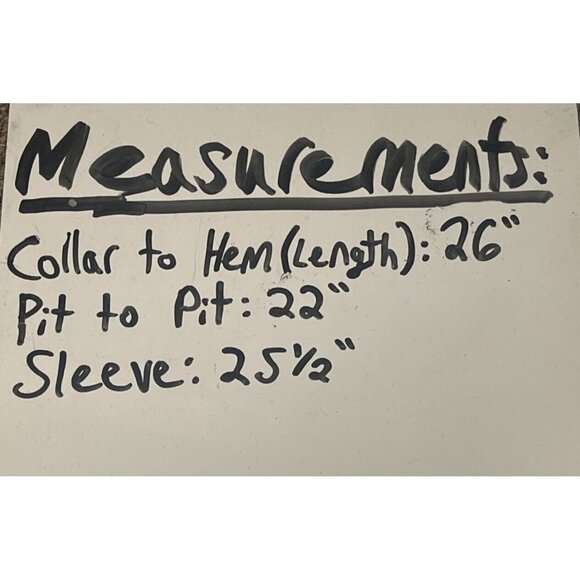 Measurements:
Collar to Hem (Length): 26"
Pit to Pit: 22"
Sleeve: 25 1/2"